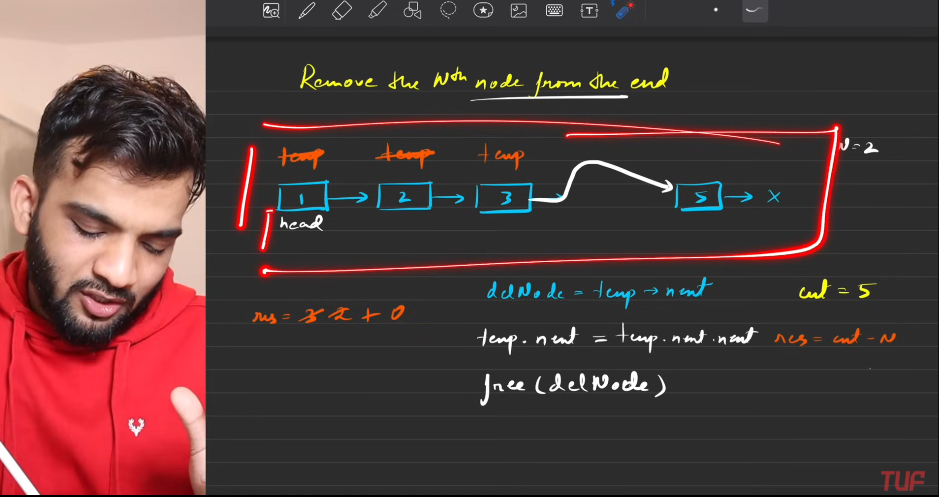 Remove the Nth node from the end
N = 2
temp temp temp
1 2 3 5 x
head
delNode = temp → next
cnt = 5
res = 3 2 1 0
temp.next = temp.next.next
res = cnt - N
free(delNode)
TUF